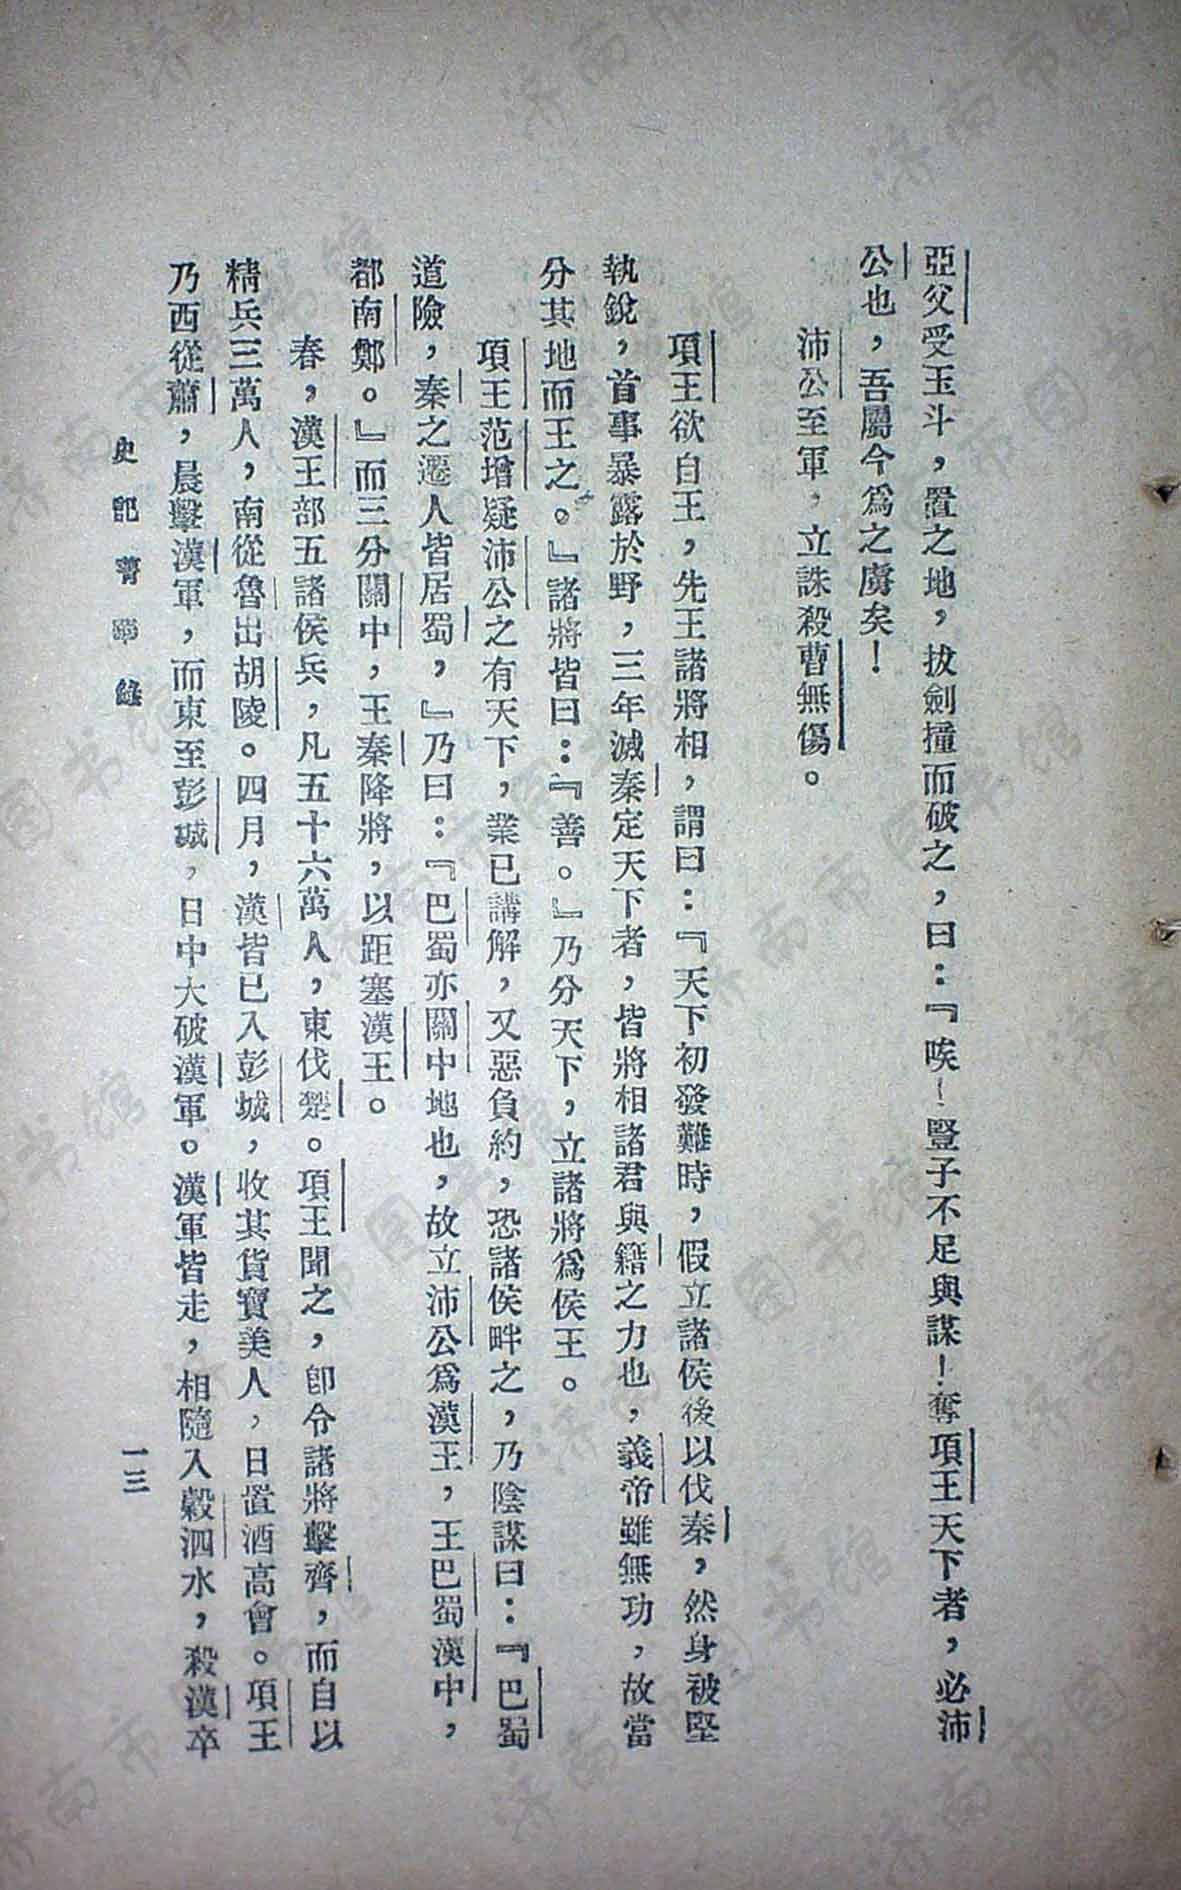 亞父受玉斗，置之地，拔劍撞而破之，曰：『唉！豎子不足與謀！奪項王天下者，必沛
公也，吾屬今爲之虜矣！
沛公至軍，立誅殺曹無傷。
項王欲自王，先王諸將相，謂曰：『天下初發難時，假立諸侯後以伐秦，然身被堅
執銳，首事暴露於野，三年滅秦定天下者，皆將相諸君與籍之力也，義帝雖無功，故當
分其地而王之。』諸將皆曰：『善。』乃分天下，立諸將爲侯王。
項王范增疑沛公之有天下，業已講解，又惡負約，恐諸侯畔之，乃陰謀曰：『巴蜀
道險，秦之遷人皆居蜀，』乃曰：『巴蜀亦關中地也，故立沛公爲漢王，王巴蜀漢中，
都南鄭。』而三分關中，王秦降將，以距塞漢王。
春，漢王部五諸侯兵，凡五十六萬人，東伐楚。項王聞之，卽令諸將擊齊，而自以
精兵三萬人，南從魯出胡陵。四月，漢皆已入彭城，收其貨寶美人，日置酒高會。項王
乃西從蕭，晨擊漢軍，而東至彭城，日中大破漢軍。漢軍皆走，相隨入穀泗水，殺漢卒
史記菁華錄
一三
济南市图书馆